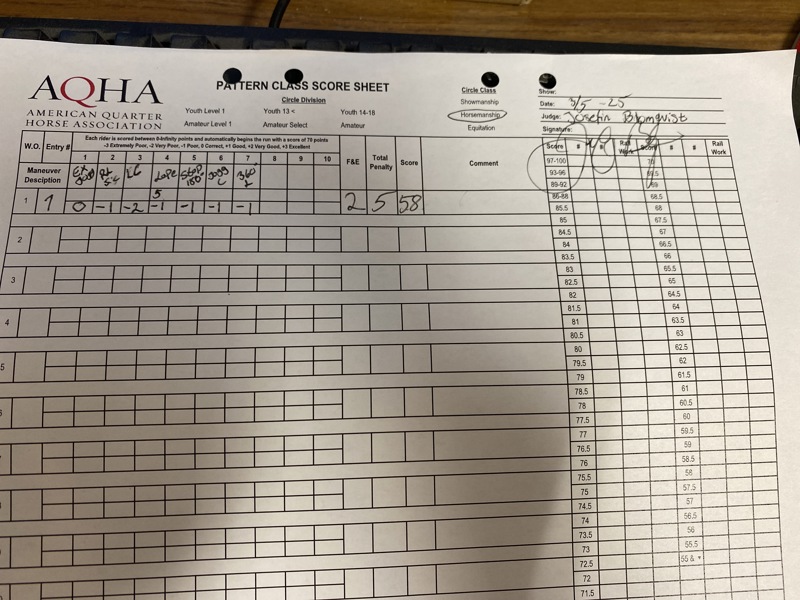 AQHA
AMERICAN QUARTER
HORSE ASSOCIATION
PATTERN CLASS SCORE SHEET
Circle Division
Youth Level 1 Youth 13 < Youth 14-18
Amateur Level 1 Amateur Select Amateur
Circle Class
Showmanship
Horsemanship
Equitation
Show:
Date: 3/5 -25
Judge: Josefin Blomqvist
Signature:
W.O. Entry # Each rider is scored between 0-Infinity points and automatically begins the run with a score of 70 points
-3 Extremely Poor, -2 Very Poor, -1 Poor, 0 Correct, +1 Good, +2 Very Good, +3 Excellent
1 2 3 4 5 6 7 8 9 10 F&E Total Penalty Score Comment
Maneuver Desciption Lope Stop 180 Jogg C 360 L
5
1 1 0 -1 -2 -1 -1 -1 -1 2 5 58
2
3
4
5
6
Score # # Rail Work Score # # Rail Work
97-100 70
93-96 69.5
89-92 69
86-88 68.5
85.5 68
85 67.5
84.5 67
84 66.5
83.5 66
83 65.5
82.5 65
82 64.5
81.5 64
81 63.5
80.5 63
80 62.5
79.5 62
79 61.5
78.5 61
78 60.5
77.5 60
77 59.5
76.5 59
76 58.5
75.5 58
75 57.5
74.5 57
74 56.5
73.5 56
73 55.5
72.5 55 &
72
71.5